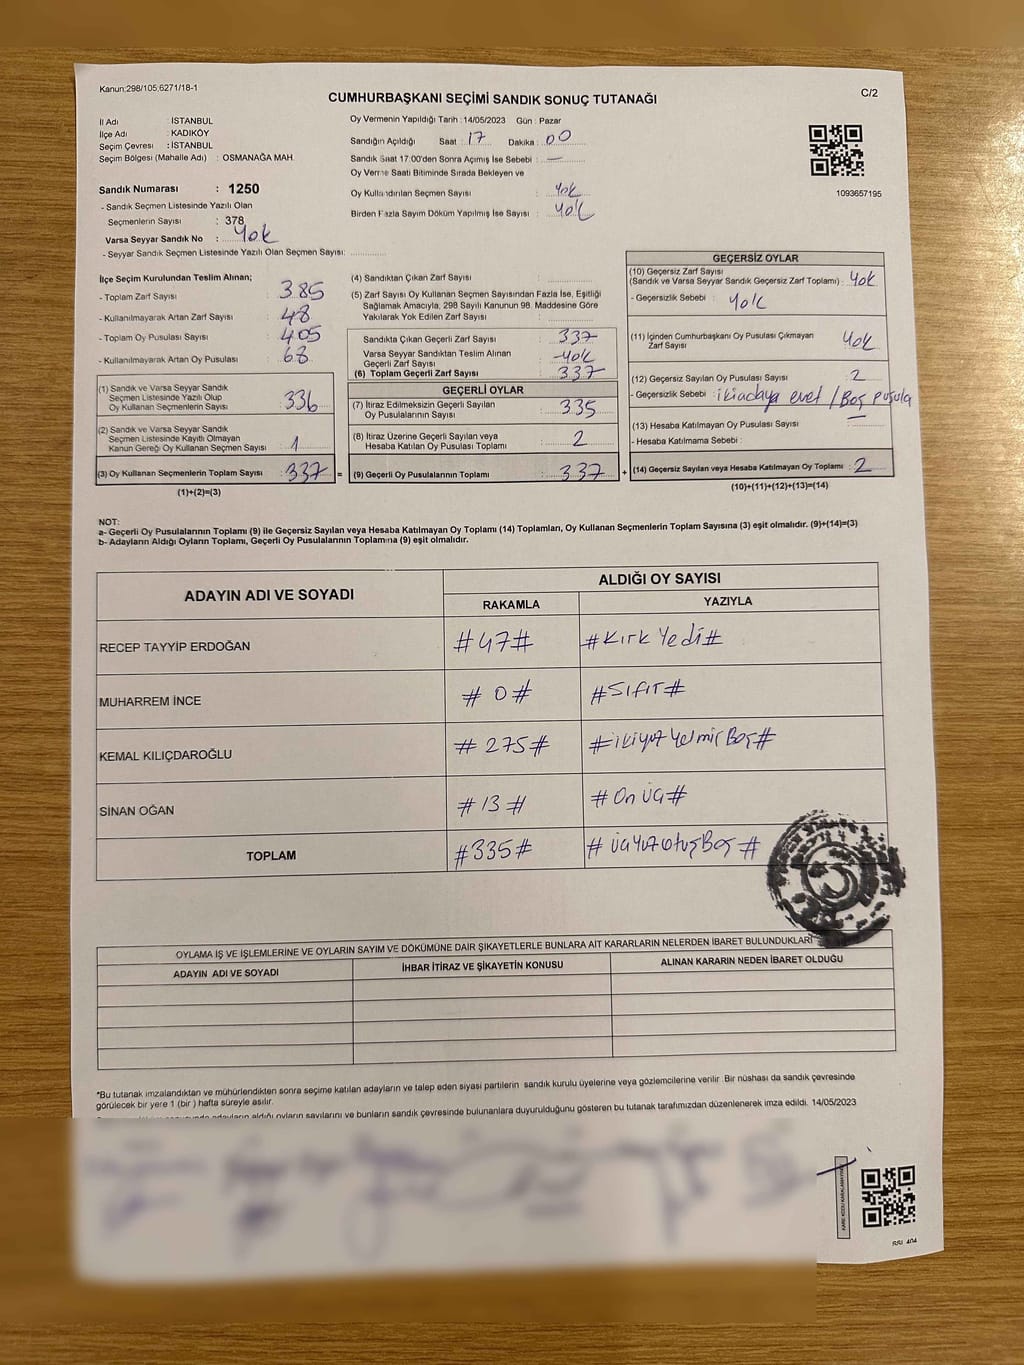 Kanun;298/105,6271/18-1
C/2
CUMHURBAŞKANI SEÇİMİ SANDIK SONUÇ TUTANAĞI
İl Adı : İSTANBUL
İlçe Adı : KADIKÖY
Seçim Çevresi : İSTANBUL
Seçim Bölgesi (Mahalle Adı) : OSMANAĞA MAH.
Sandık Numarası : 1250
- Sandık Seçmen Listesinde Yazılı Olan
Seçmenlerin Sayısı : 378
Varsa Seyyar Sandık No : Yok
- Seyyar Sandık Seçmen Listesinde Yazılı Olan Seçmen Sayısı:
Oy Vermenin Yapıldığı Tarih :14/05/2023 Gün : Pazar
Sandığın Açıldığı Saat : 17 Dakika : 00
Sandık Saat 17.00'den Sonra Açımış İse Sebebi : —
Oy Verme Saati Bitiminde Sırada Bekleyen ve
Oy Kullandırılan Seçmen Sayısı : Yok
Birden Fazla Sayım Döküm Yapılmış İse Sayısı : Yok
1093657195
İlçe Seçim Kurulundan Teslim Alınan;
- Toplam Zarf Sayısı : 385
- Kullanılmayarak Artan Zarf Sayısı : 48
- Toplam Oy Pusulası Sayısı : 405
- Kullanılmayarak Artan Oy Pusulası : 68
(1) Sandık ve Varsa Seyyar Sandık
Seçmen Listesinde Yazılı Olup
Oy Kullanan Seçmenlerin Sayısı : 336
(2) Sandık ve Varsa Seyyar Sandık
Seçmen Listesinde Kayıtlı Olmayan
Kanun Gereği Oy Kullanan Seçmen Sayısı : 1
(3) Oy Kullanan Seçmenlerin Toplam Sayısı : 337 =
(1)+(2)=(3)
(4) Sandıktan Çıkan Zarf Sayısı :
(5) Zarf Sayısı Oy Kullanan Seçmen Sayısından Fazla İse, Eşitliği
Sağlamak Amacıyla, 298 Sayılı Kanunun 98. Maddesine Göre
Yakılarak Yok Edilen Zarf Sayısı :
Sandıkta Çıkan Geçerli Zarf Sayısı : 337
Varsa Seyyar Sandıktan Teslim Alınan
Geçerli Zarf Sayısı : Yok
(6) Toplam Geçerli Zarf Sayısı : 337
GEÇERLİ OYLAR
(7) İtiraz Edilmeksizin Geçerli Sayılan
Oy Pusulalarının Sayısı : 335
(8) İtiraz Üzerine Geçerli Sayılan veya
Hesaba Katılan Oy Pusulası Toplamı : 2
(9) Geçerli Oy Pusulalarının Toplamı : 337 +
GEÇERSİZ OYLAR
(10) Geçersiz Zarf Sayısı
(Sandık ve Varsa Seyyar Sandık Geçersiz Zarf Toplamı) : Yok
- Geçersizlik Sebebi : Yok
(11) İçinden Cumhurbaşkanı Oy Pusulası Çıkmayan
Zarf Sayısı : Yok
(12) Geçersiz Sayılan Oy Pusulası Sayısı : 2
- Geçersizlik Sebebi : iki adaya evet / Boş pusula
(13) Hesaba Katılmayan Oy Pusulası Sayısı : —
- Hesaba Katılmama Sebebi :
(14) Geçersiz Sayılan veya Hesaba Katılmayan Oy Toplamı : 2
(10)+(11)+(12)+(13)=(14)
NOT:
a- Geçerli Oy Pusulalarının Toplamı (9) ile Geçersiz Sayılan veya Hesaba Katılmayan Oy Toplamı (14) Toplamları, Oy Kullanan Seçmenlerin Toplam Sayısına (3) eşit olmalıdır. (9)+(14)=(3)
b- Adayların Aldığı Oyların Toplamı, Geçerli Oy Pusulalarının Toplamına (9) eşit olmalıdır.
ADAYIN ADI VE SOYADI
ALDIĞI OY SAYISI
RAKAMLA YAZIYLA
RECEP TAYYİP ERDOĞAN #47# #Kırk Yedi#
MUHARREM İNCE #0# #Sıfır#
KEMAL KILIÇDAROĞLU #275# #ikiyüz Yetmiş Beş#
SİNAN OĞAN #13# #On üç#
TOPLAM #335# #üçYüzotuzBeş#
OYLAMA İŞ VE İŞLEMLERİNE VE OYLARIN SAYIM VE DÖKÜMÜNE DAİR ŞİKAYETLERLE BUNLARA AİT KARARLARIN NELERDEN İBARET BULUNDUKLARI
ADAYIN ADI VE SOYADI İHBAR İTİRAZ VE ŞİKAYETİN KONUSU ALINAN KARARIN NEDEN İBARET OLDUĞU
*Bu tutanak imzalandıktan ve mühürlendikten sonra seçime katılan adayların ve talep eden siyasi partilerin sandık kurulu üyelerine veya gözlemcilerine verilir. Bir nüshası da sandık çevresinde
görülecek bir yere 1 (bir ) hafta süreyle asılır.
adayların aldığı oyların sayılarını ve bunların sandık çevresinde bulunanlara duyurulduğunu gösteren bu tutanak tarafımızdan düzenlenerek imza edildi. 14/05/2023